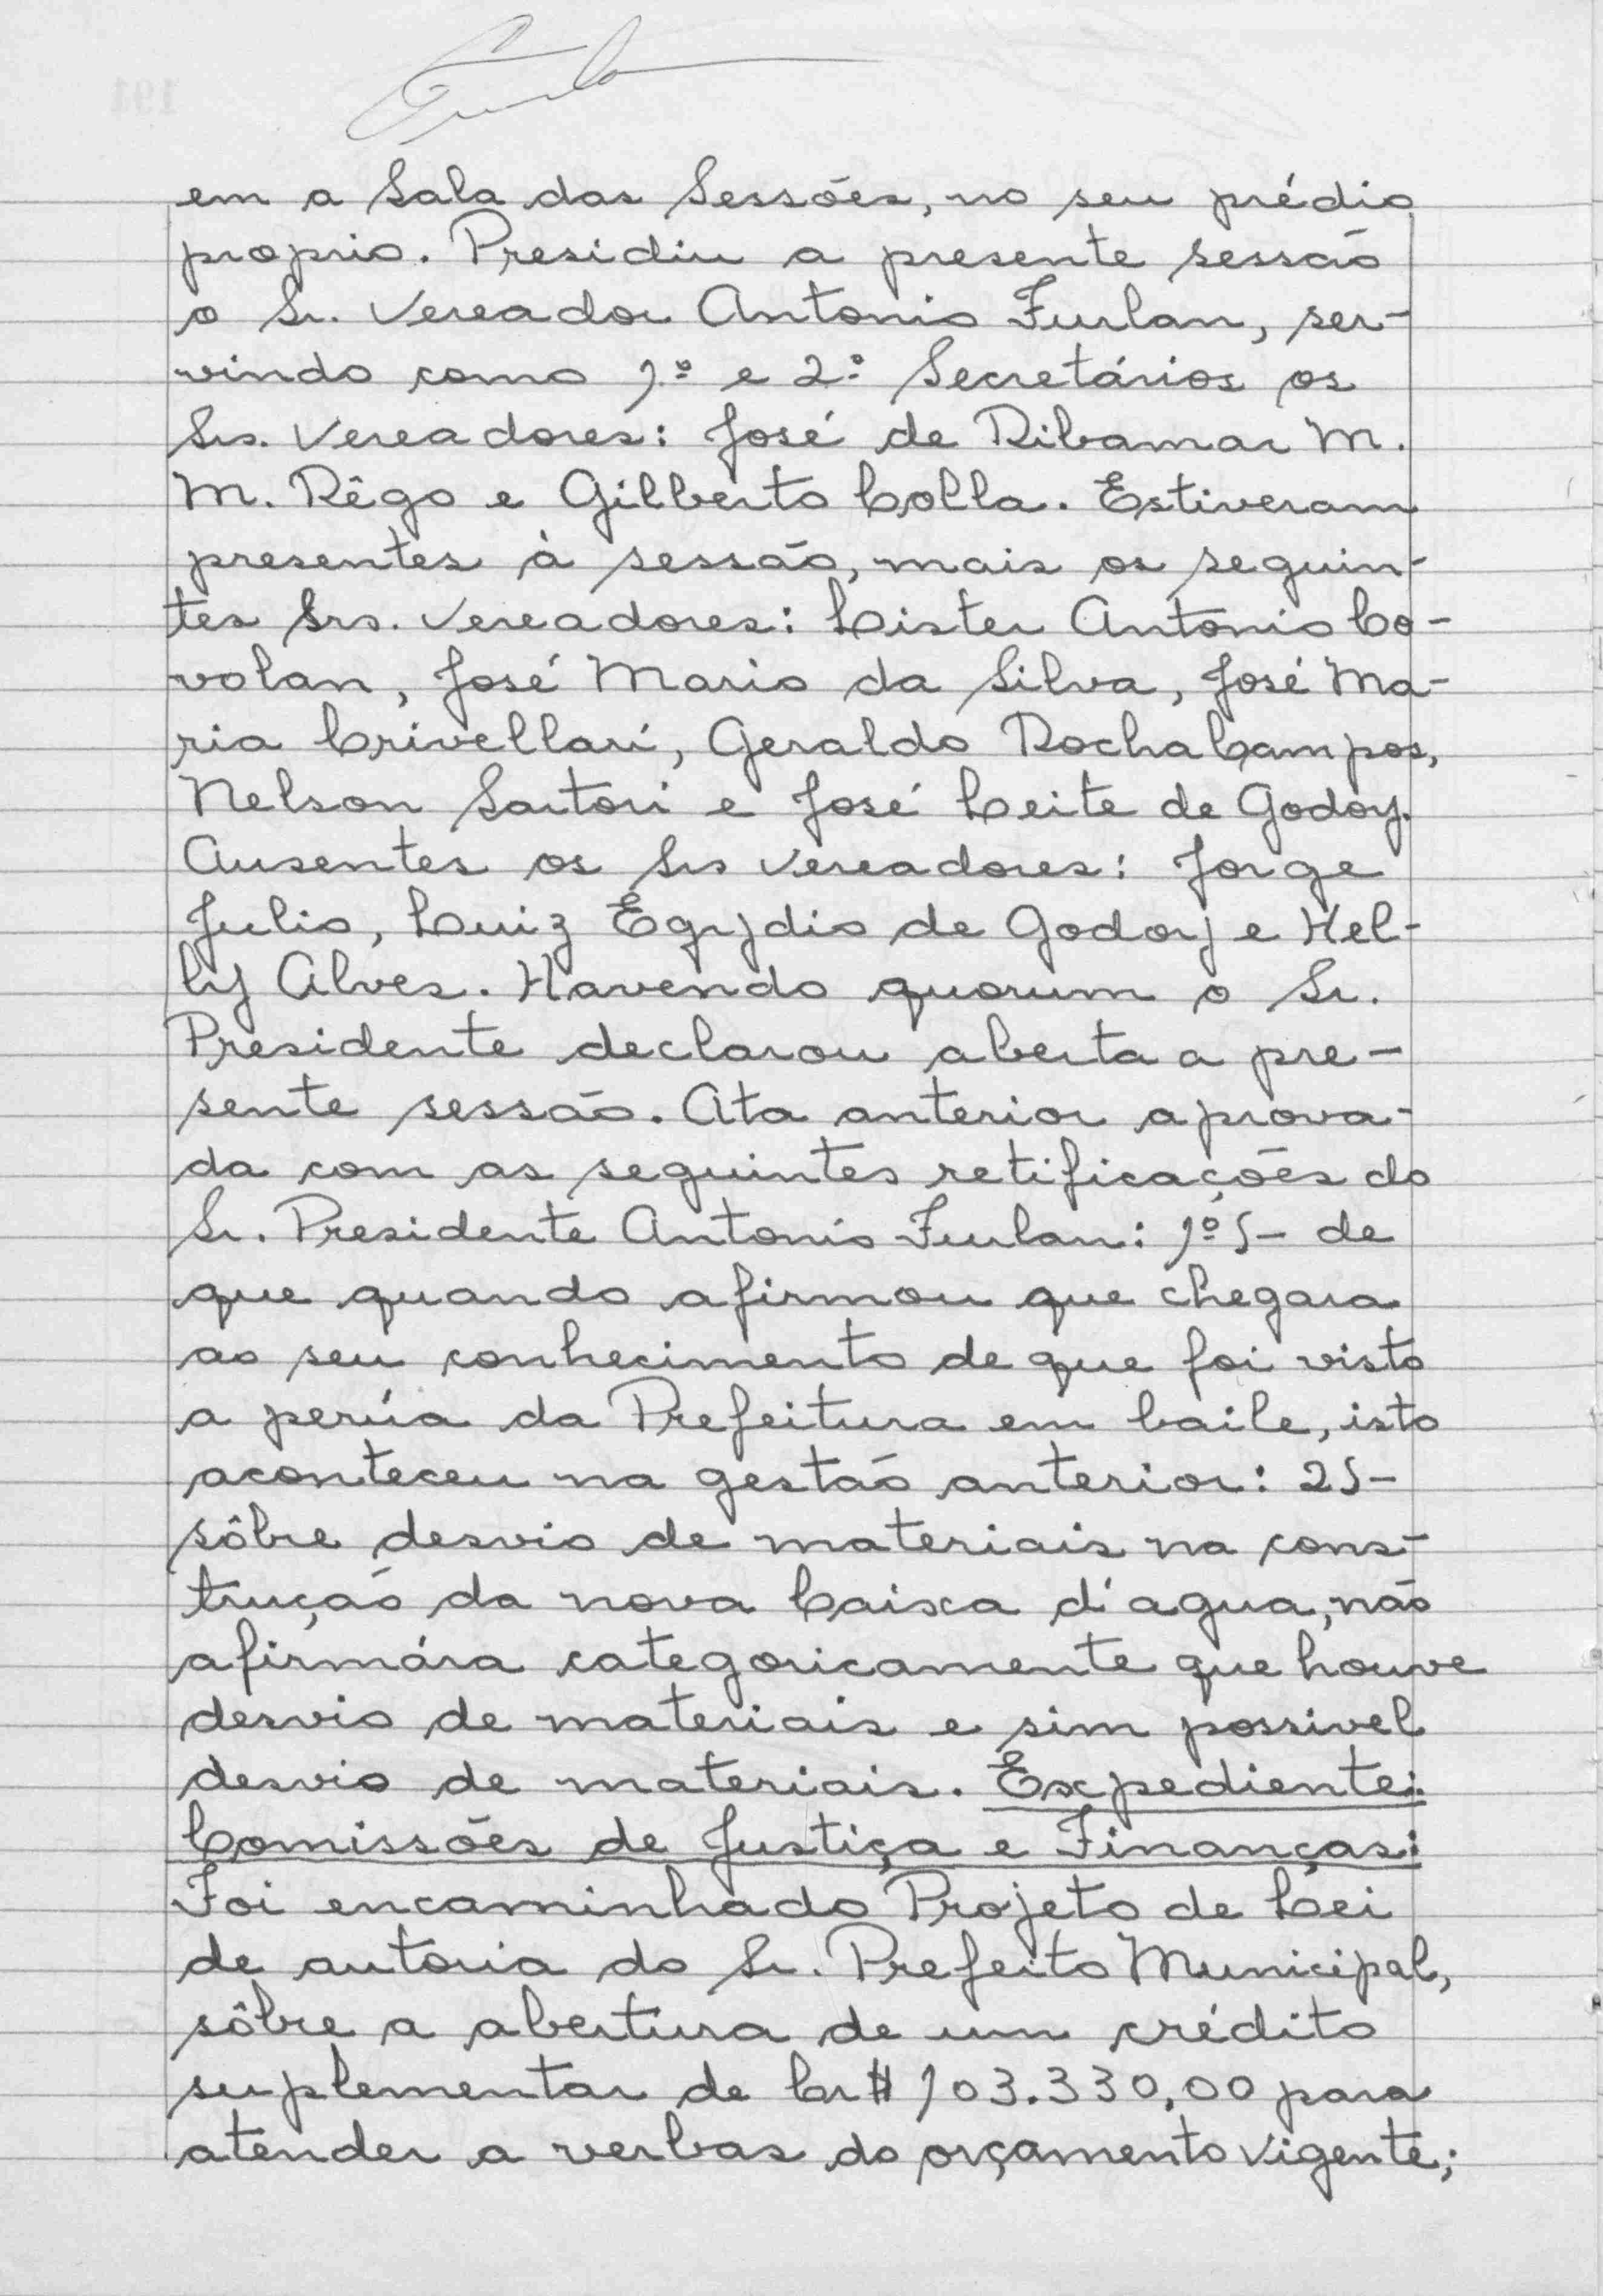 em a Sala das Sessões, no seu prédio
proprio. Presidiu a presente sessão
o Sr. Vereador Antonio Furlan, ser-
vindo como 1º e 2º Secretários os
Srs. Vereadores: José de Ribamar M.
M. Rêgo e Gilberto Colla. Estiveram
presentes à sessão, mais os seguin-
tes Srs. Vereadores: Lister Antonio Co-
volan, José Mario da Silva, José Ma-
ria Crivellari, Geraldo Rocha Campos,
Nelson Sartori e José Leite de Godoy.
Ausentes os Srs Vereadores: Jorge
Julio, Luiz Egydio de Godoy e Hel-
ly Alves. Havendo quorum o Sr.
Presidente declarou aberta a pre-
sente sessão. Ata anterior aprova-
da com as seguintes retificações do
Sr. Presidente Antonio Furlan: 1º)- de
que quando afirmou que chegara
ao seu conhecimento de que foi visto
a perúa da Prefeitura em baile, isto
aconteceu na gestão anterior: 2)-
sôbre desvio de materiais na cons-
trução da nova Caixa d'agua, não
afirmára categoricamente que houve
desvio de materiais e sim possivel
desvio de materiais. Expediente:
Comissões de Justiça e Finanças:
Foi encaminhado Projeto de Lei
de autoria do Sr. Prefeito Municipal,
sôbre a abertura de um crédito
suplementar de Cr$ 103.330,00 para
atender a verbas do orçamento vigente;